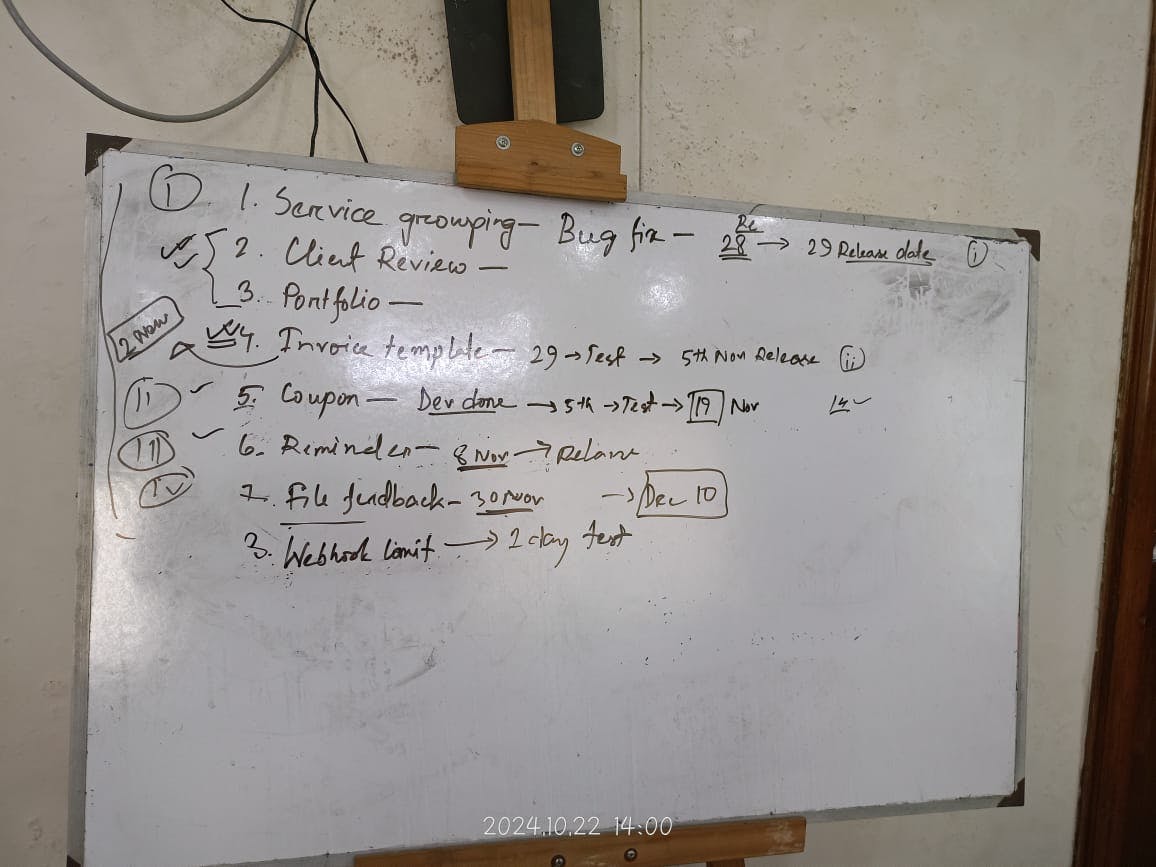 (I) 1. Service grouping - Bug fix - 28 → 29 Release date (i)
2. Client Review -
3. Portfolio -
2 Nov
4. Invoice template - 29 → Test → 5th Nov Release (ii)
(II) 5. Coupon - Dev done → 5th → Test → 19 Nov 14
(III) 6. Reminder - 8 Nov →
(iv) 7. File feedback - 30 Nov → Dec 10
Webhook limit → 2 day test
2024.10.22 14:00